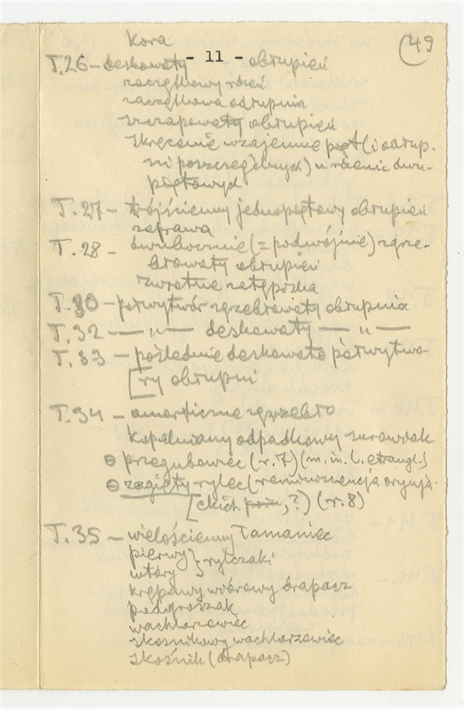 kora
- 11 -
49
T.26 - deskowaty obłupień
zaczątkowy rdzeń
zaczątkowa odłupnia
szczapowaty obłupień
skręcenie wzajemne pięt (i odłup-
ni poszczególnych) u rdzeni dwu-
piętowych
T.27 - trójścienny jednopiętowy obłupień
zaprawa
T.28 - dwubocznie (= podwójnie) zgrze-
błowaty obłupień
zwrotne zatępiska
T.30 - półwytwór zgrzebłowaty obłupnia
T.32 — „ — deskowaty — „ —
T.33 - pośrednie deskowate półwytwo-
[ry obłupni
T.34 - amorficzne zgrzebło
kopalniany odpadkowy surowiak
⊖ przegubowiec (r.7) (m.in. l. étrangl.)
⊖ zagięty rylec (reminiscencja orynia-
[ckich, ?) (r.8)
T.35 - wielościenny łamaniec
pierwy } rylczaki
wtóry
krępawy wiórowy drapacz
podgroszak
wachlarzowiec
skośnikowy wachlarzowiec
skośnik (drapacz)